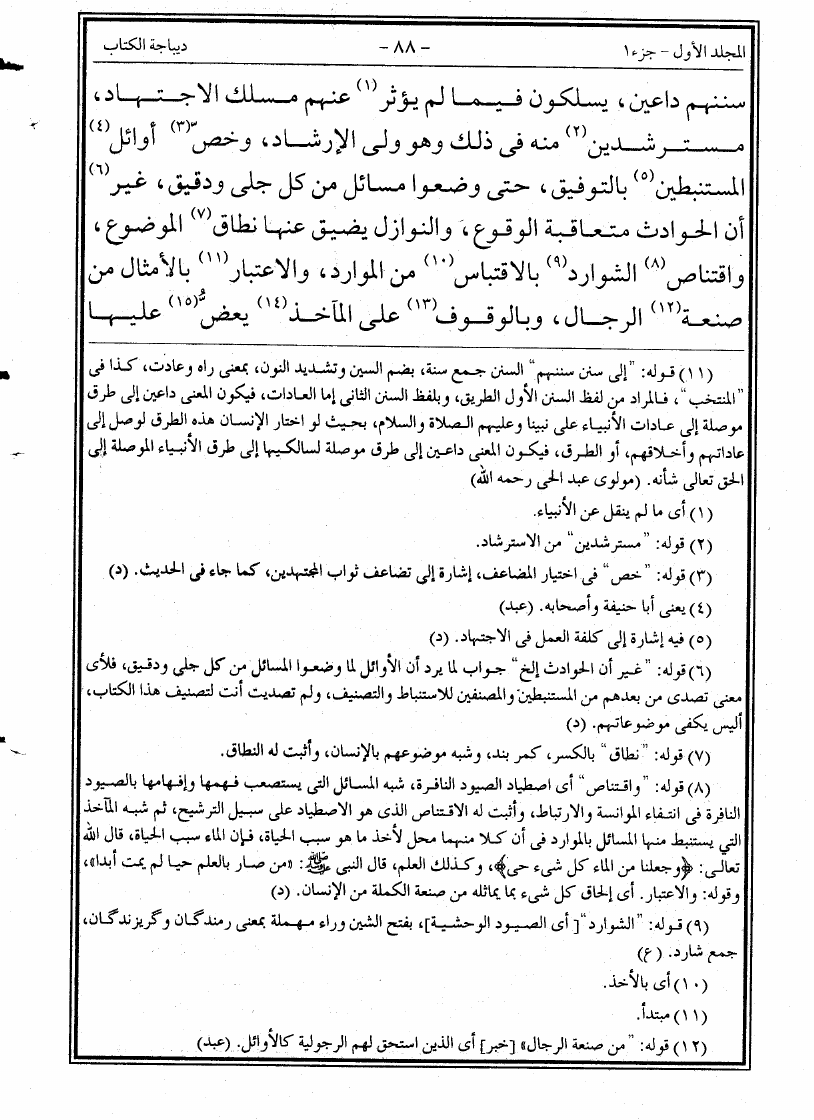 المجلد الأول – جزء ١ - ٨٨ - ديباجة الكتاب
سننهم داعين، يسلكون فيما لم يؤثر(١) عنهم مسلك الاجتهاد،
مسترشدين(٢) منه فى ذلك وهو ولى الإرشاد، وخص(٣) أوائل(٤)
المستنبطين(٥) بالتوفيق، حتى وضعوا مسائل من كل جلى ودقيق، غير(٦)
أن الحوادث متعاقبة الوقوع، والنوازل يضيق عنها نطاق(٧) الموضوع،
واقتناص(٨) الشوارد(٩) بالاقتباس(١٠) من الموارد، والاعتبار(١١) بالأمثال من
صنعة(١٢) الرجال، وبالوقوف(١٣) على المآخذ(١٤) يعضُّ(١٥) عليها
(١١) قوله: "إلى سنن سننهم" السنن جمع سنة، بضم السين وتشديد النون، بمعنى راه وعادت، كذا فى
"المنتخب"، فالمراد من لفظ السنن الأول الطريق، وبلفظ السنن الثانى إما العادات، فيكون المعنى داعين إلى طرق
موصلة إلى عادات الأنبياء على نبينا وعليهم الصلاة والسلام، بحيث لو اختار الإنسان هذه الطرق لوصل إلى
عاداتهم وأخلاقهم، أو الطرق، فيكون المعنى داعين إلى طرق موصلة لسالكيها إلى طرق الأنبياء الموصلة إلى
الحق تعالى شأنه. (مولوى عبد الحى رحمه الله)
(١) أى ما لم ينقل عن الأنبياء.
(٢) قوله: "مسترشدين" من الاسترشاد.
(٣) قوله: "خص" فى اختيار المضاعف، إشارة إلى تضاعف ثواب المجتهدين، كما جاء فى الحديث. (د)
(٤) يعنى أبا حنيفة وأصحابه. (عبد)
(٥) فيه إشارة إلى كلفة العمل فى الاجتهاد. (د)
(٦) قوله: "غير أن الحوادث إلخ" جواب لما يرد أن الأوائل لما وضعوا المسائل من كل جلى ودقيق، فلأى
معنى تصدى من بعدهم من المستنبطين والمصنفين للاستنباط والتصنيف، ولم تصديت أنت لتصنيف هذا الكتاب،
أليس يكفى موضوعاتهم. (د)
(٧) قوله: "نطاق" بالكسر، كمر بند، وشبه موضوعهم بالإنسان، وأثبت له النطاق.
(٨) قوله: "واقتناص" أى اصطياد الصيود النافرة، شبه المسائل التى يستصعب فهمها وإفهامها بالصيود
النافرة فى انتفاء الموانسة والارتباط، وأثبت له الاقتناص الذى هو الاصطياد على سبيل الترشيح، ثم شبه المآخذ
التي يستنبط منها المسائل بالموارد فى أن كلا منهما محل لأخذ ما هو سبب الحياة، فإن الماء سبب الحياة، قال الله
تعالى: ﴿وجعلنا من الماء كل شىء حى﴾، وكذلك العلم، قال النبى ﷺ: «من صار بالعلم حيا لم يمت أبدا»،
وقوله: والاعتبار. أى إلحاق كل شىء بما يماثله من صنعة الكملة من الإنسان. (د)
(٩) قوله: "الشوارد" [أى الصيود الوحشية]، بفتح الشين وراء مهملة بمعنى رمندگان وگريزندگان،
جمع شارد. (ع)
(١٠) أى بالأخذ.
(١١) مبتدأ.
(١٢) قوله: "من صنعة الرجال» [خبر] أى الذين استحق لهم الرجولية كالأوائل. (عبد)